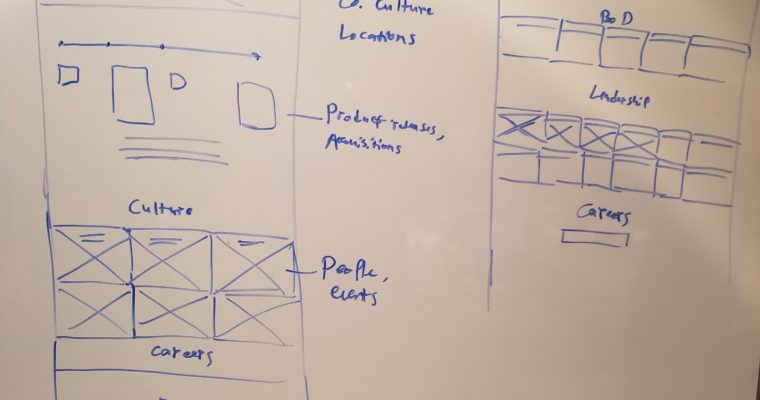 Co. Culture
Locations
Product releases,
Acquisitions
Culture
People,
events
Careers
BoD
Leadership
Careers